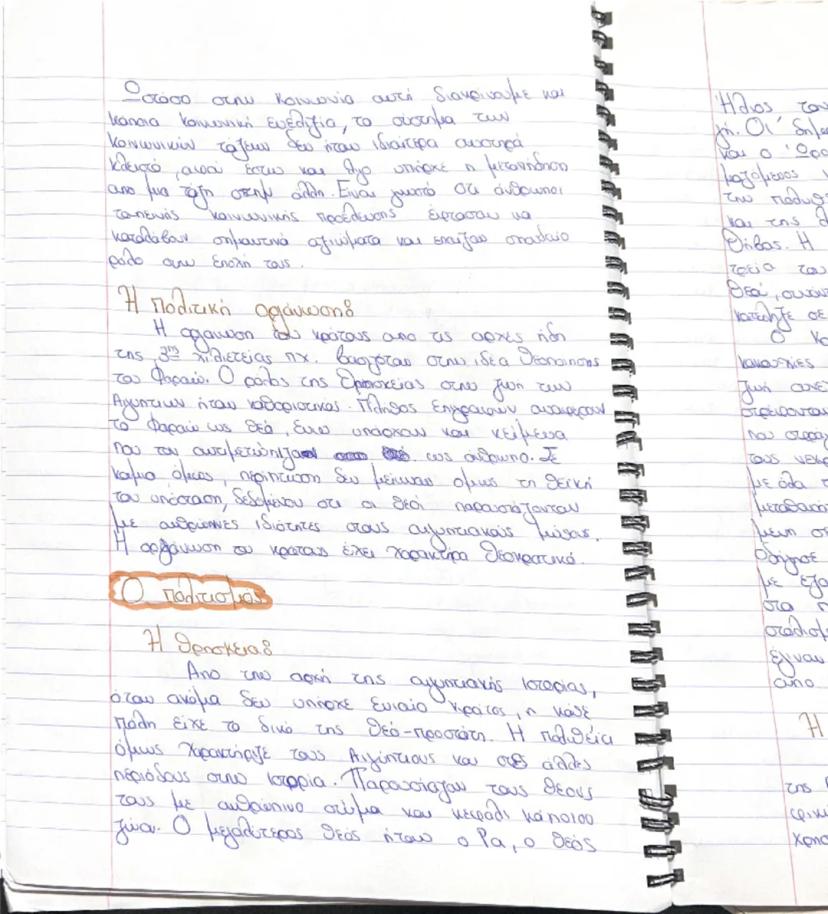 Ωστόσο στην κοινωνία αυτή διακρίνουμε και
κάποια κοινωνική ευελιξία, το σύστημα των
κοινωνικών τάξεων δεν ήταν ιδιαίτερα αυστηρά
κλειστό, αφού έστω και λίγο υπήρχε η μεταπήδηση
από μια τάξη στην άλλη. Είναι γνωστό οτι άνθρωποι
ταπεινής κοινωνικής προέλευσης έφτασαν να
καταλάβουν σημαντικά αξιώματα και επαιξαν σπουδαίο
ρόλο στην εποχή τους.
Η πολιτική οργάνωση:
Η οργάνωση του κράτους απο τις αρχές ήδη
της 3ης χιλιετείας πχ. βασιζόταν στην ιδέα θεοποίησης
του Φαραώ. Ο ρόλος της θρησκείας στην ζωή των
Αιγυπτίων ήταν καθοριστικός. Πλήθος επιγραφών αναφέρουν
το Φαραώ ως θεό, ενω υπάρχουν και κείμενα
που τον αντιμετώπιζαν ως ανθρωπο. Σε
καμια όμως, περίπτωση δεν μείωναν ομως τη θεϊκή
του υπόσταση, δεδομένου οτι οι θεοί παρουσιάζονταν
με ανθρώπινες ιδιότητες στους αιγυπτιακούς μύθους.
Η οργάνωση του κράτους έχει χαρακτήρα θεοκρατικό.
Ο πολιτισμός
Η θρησκεία:
Απο την αρχή της αιγυπτιακής ιστορίας,
όταν ακόμα δεν υπήρχε ενιαίο κράτος, η κάθε
πόλη είχε το δικό της θεό-προστάτη. Η πολυθεϊα
όμως χαρακτήριζε τους Αιγύπτιους και στις άλλες
περιόδους στην ιστορία. Παρουσίαζαν τους θεούς
τους με ανθρώπινο σώμα και κεφάλι κάποιου
ζώου. Ο μεγαλύτερος θεός ήταν ο Ρα, ο θεός
Ήλιος του
γή. Οι δημι
και ο Όσι
την πολυθ
και της
Θήβας. Η
τρεία του
θεά, συχν
κατέληξε σε
Ο
κακουχίες
ζωή συνε
που
τους νεκρ
με όλα τ
μεταθανάτ
μενη στ
οδήγησε
με εξα
στα π
στολισμ
έγιναν
απο
Η
της
χρησ